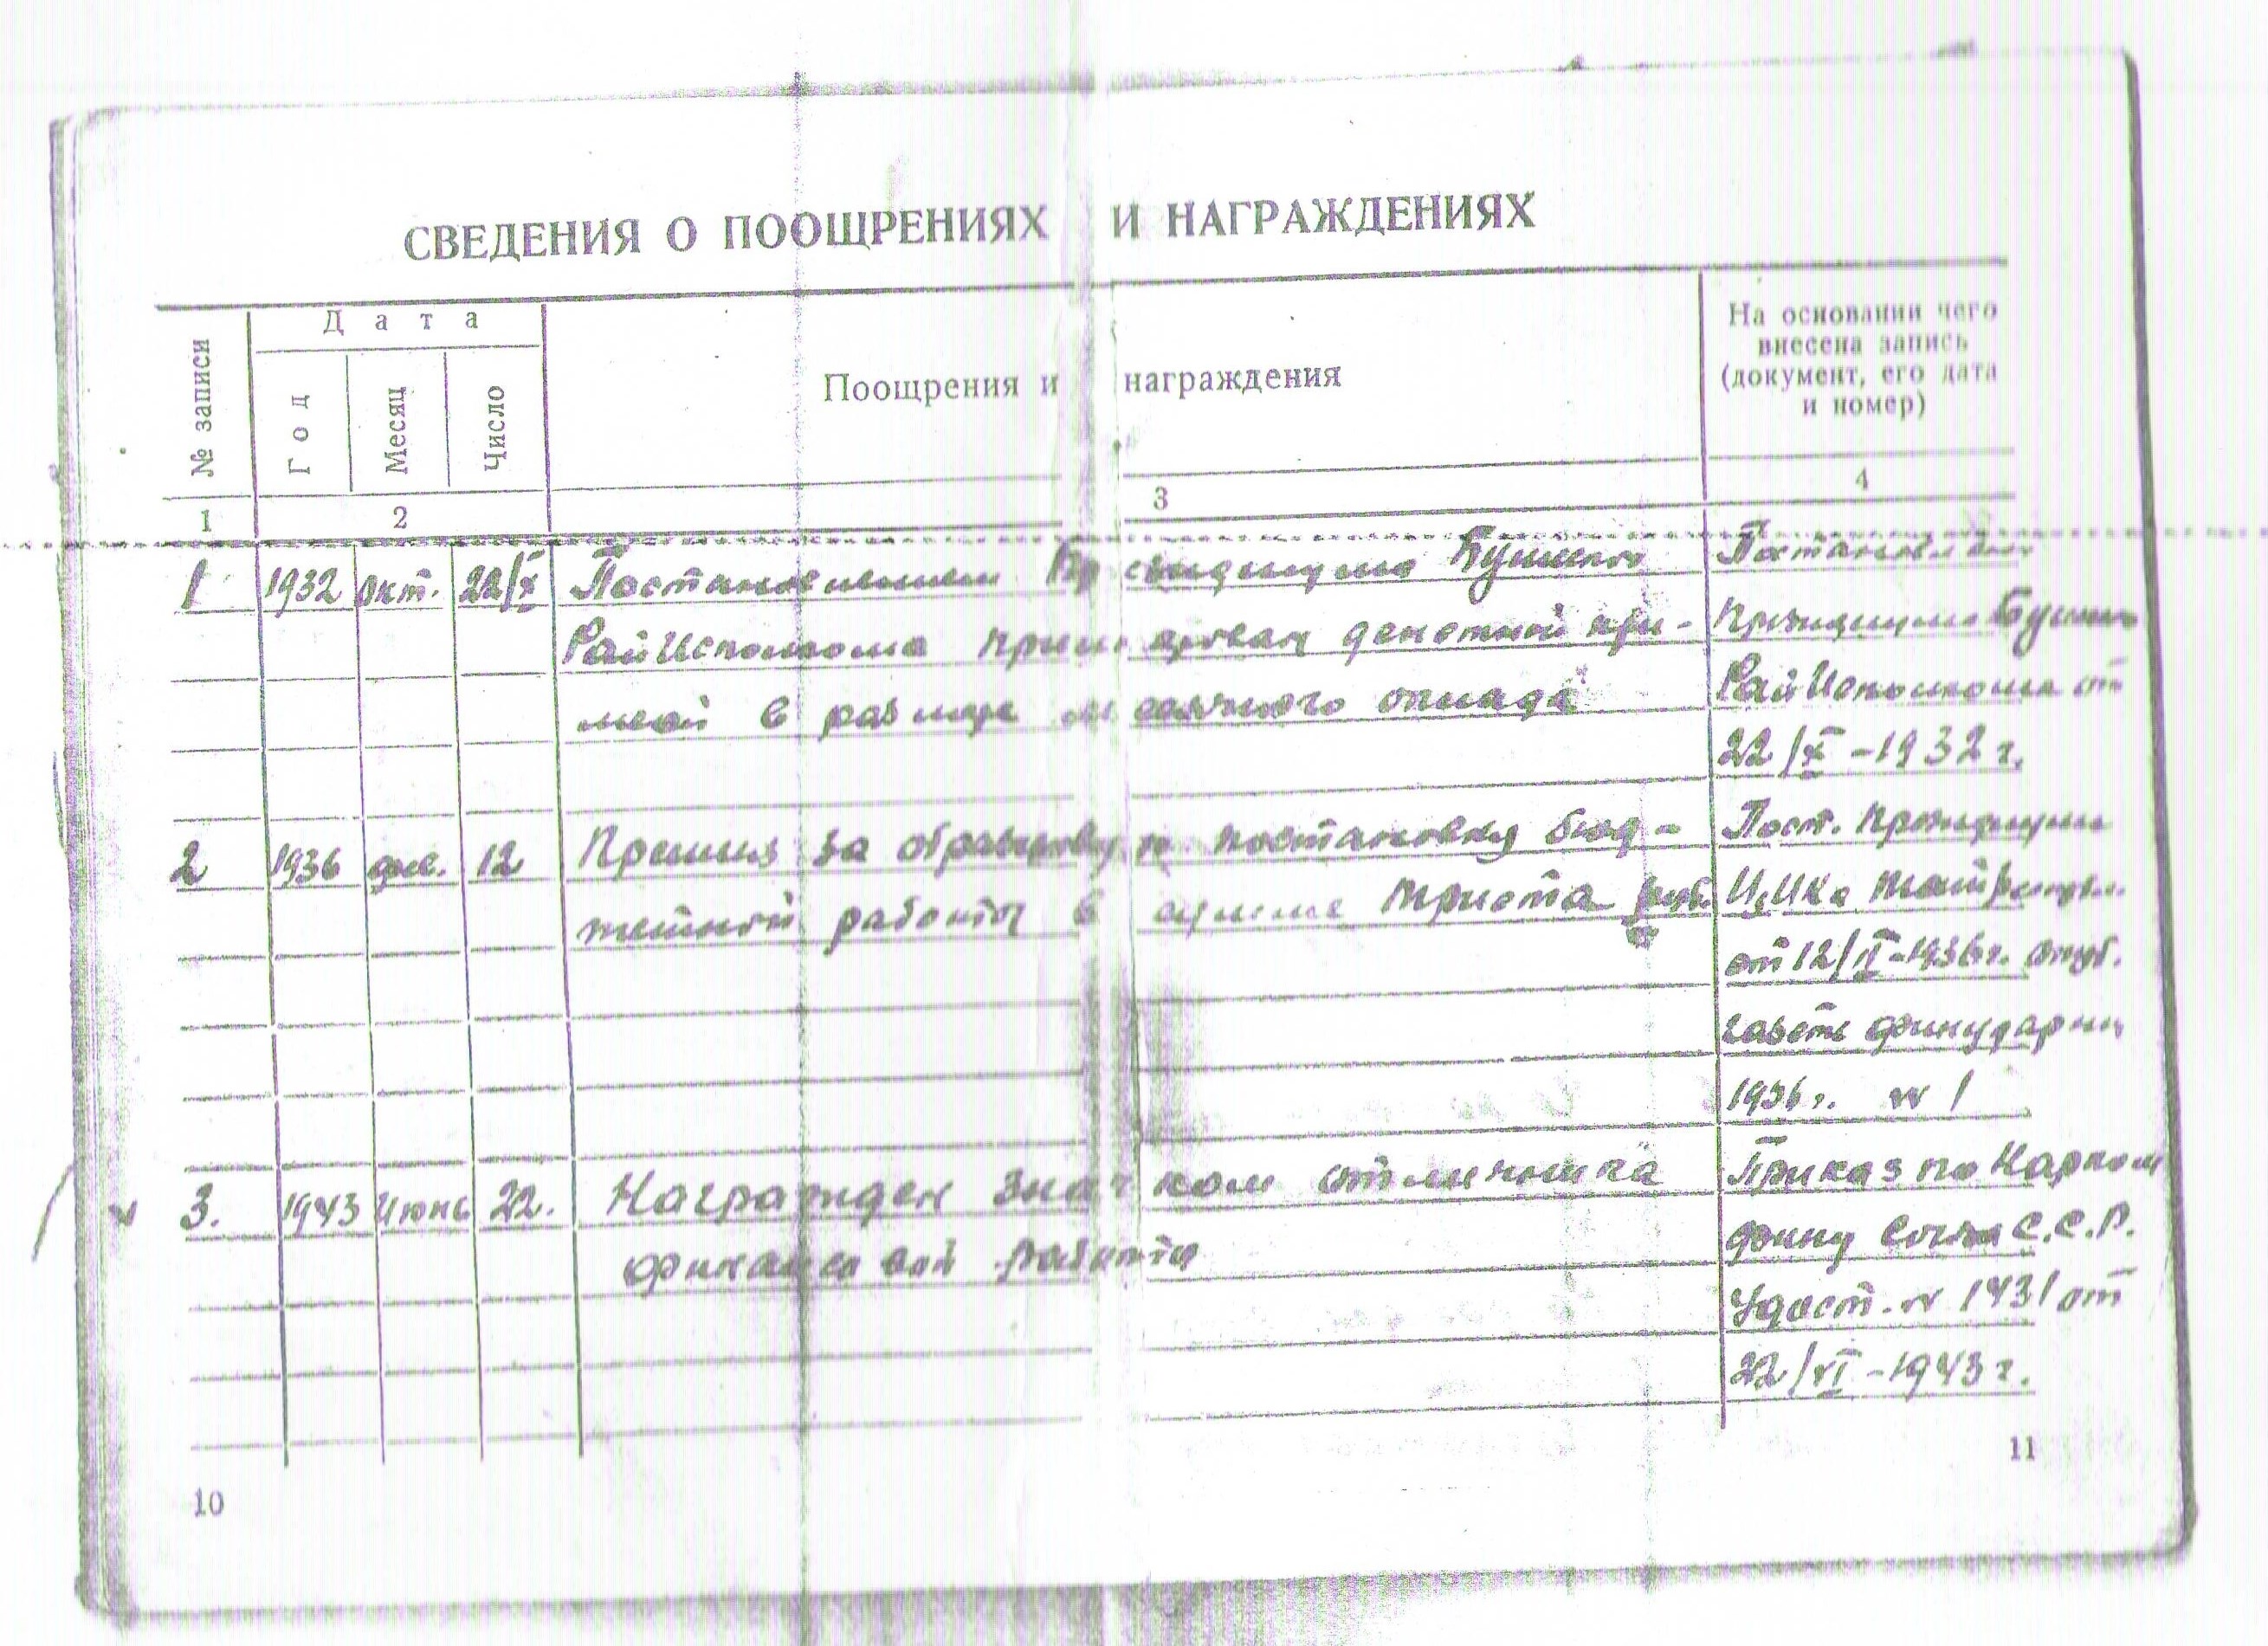 СВЕДЕНИЯ О ПООЩРЕНИЯХ И НАГРАЖДЕНИЯХ
№ записи
Дата
Год
Месяц
Число
Поощрения и награждения
На основании чего
внесена запись
(документ, его дата
и номер)
1 2 3 4
1 1932 окт. 22/X Постановлением Президиума
РайИсполкома премирован денежной пре-
мией в размере месячного оклада
Постановлен
Президиума
РайИсполкома от
22/X-1932 г.
2 1936 фев. 12 Премия за образцовую постановку бюд-
жетной работы в сумме триста руб.
Пост. Президиум
от 12/II-1936г. опуб.
газете финударник
1936 г. № 1
3. 1943 Июнь 22. Награжден значком отличника
финансовой работы
Приказ по Нарком
фину Союза С.С.Р.
Удост. № 1431 от
22/VI-1943 г.
10
11